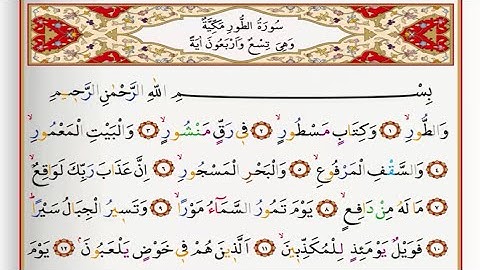 سُورَةُ الطُّورِ مَكِّيَّةٌ
وَهِيَ تِسْعٌ وَاَرْبَعُونَ اٰيَةً
بِسْمِ اللهِ الرَّحْمٰنِ الرَّحِيمِ
وَالطُّورِۙ ﴿١﴾ وَكِتَابٍ مَسْطُورٍۙ ﴿٢﴾ فِي رَقٍّ مَنْشُورٍۙ ﴿٣﴾ وَالْبَيْتِ الْمَعْمُورِۙ
﴿٤﴾ وَالسَّقْفِ الْمَرْفُوعِۙ ﴿٥﴾ وَالْبَحْرِ الْمَسْجُورِۙ ﴿٦﴾ اِنَّ عَذَابَ رَبِّكَ لَوَاقِعٌۙ
﴿٧﴾ مَا لَهُ مِنْ دَافِعٍۙ ﴿٨﴾ يَوْمَ تَمُورُ السَّمَٓاءُ مَوْرًاۙ ﴿٩﴾ وَتَسِيرُ الْجِبَالُ سَيْرًاۜ
﴿١٠﴾ فَوَيْلٌ يَوْمَئِذٍ لِلْمُكَذِّبِينَۙ ﴿١١﴾ اَلَّذِينَ هُمْ فِي خَوْضٍ يَلْعَبُونَۢ ﴿١٢﴾ يَوْمَ